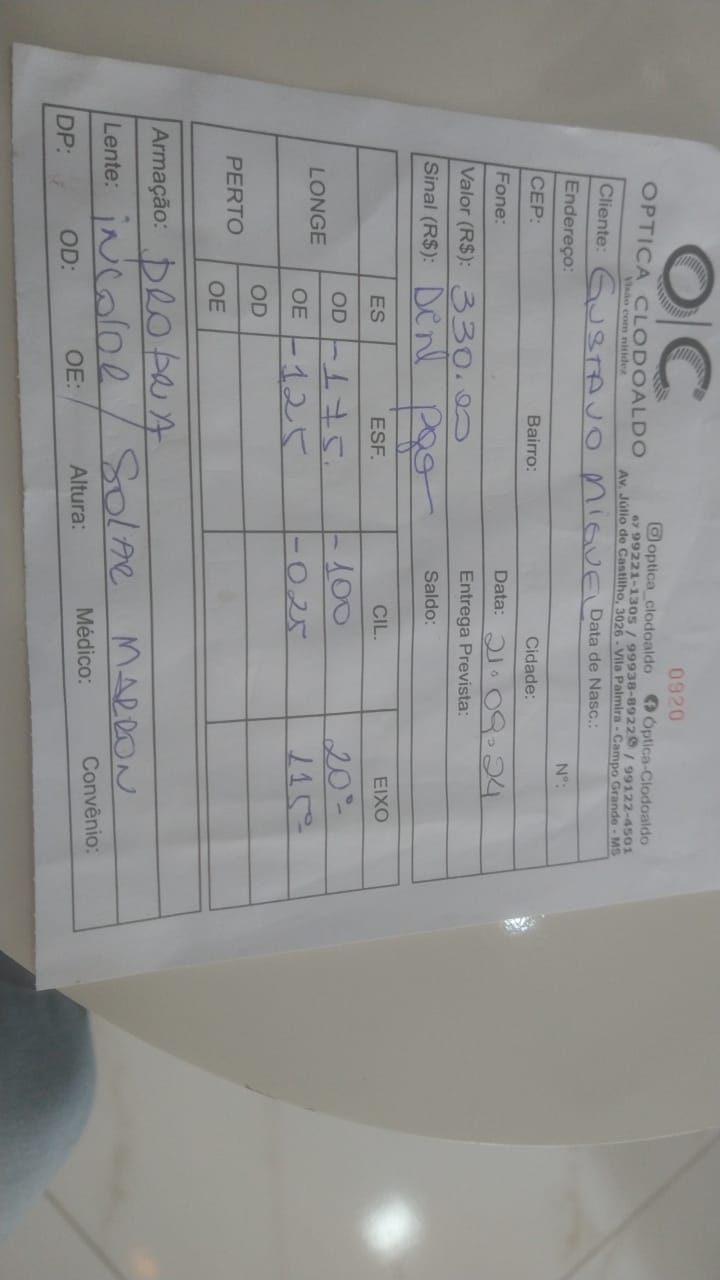 0920
O|C
OPTICA CLODOALDO
Visão com nitidez
optica_clodoaldo Óptica-Clodoaldo
67 99221-1305 / 99938-8922 / 99122-4501
Av. Júlio de Castilho, 3026 - Vila Palmira - Campo Grande - MS
Cliente: GUSTAVO MIGUEL Data de Nasc.:
Endereço: Nº:
CEP: Bairro: Cidade:
Fone: Data: 21.09.24
Valor (R$): 330.00 Entrega Prevista:
Sinal (R$): Din pago Saldo:
ES ESF. CIL. EIXO
LONGE OD -175. -100 20º-
OE -125 -025 115º-
PERTO OD
OE
Armação: PROPRIA
Lente: INCOLOR / SOLAR MARRON
DP: OD: OE: / Altura: Médico: Convênio: